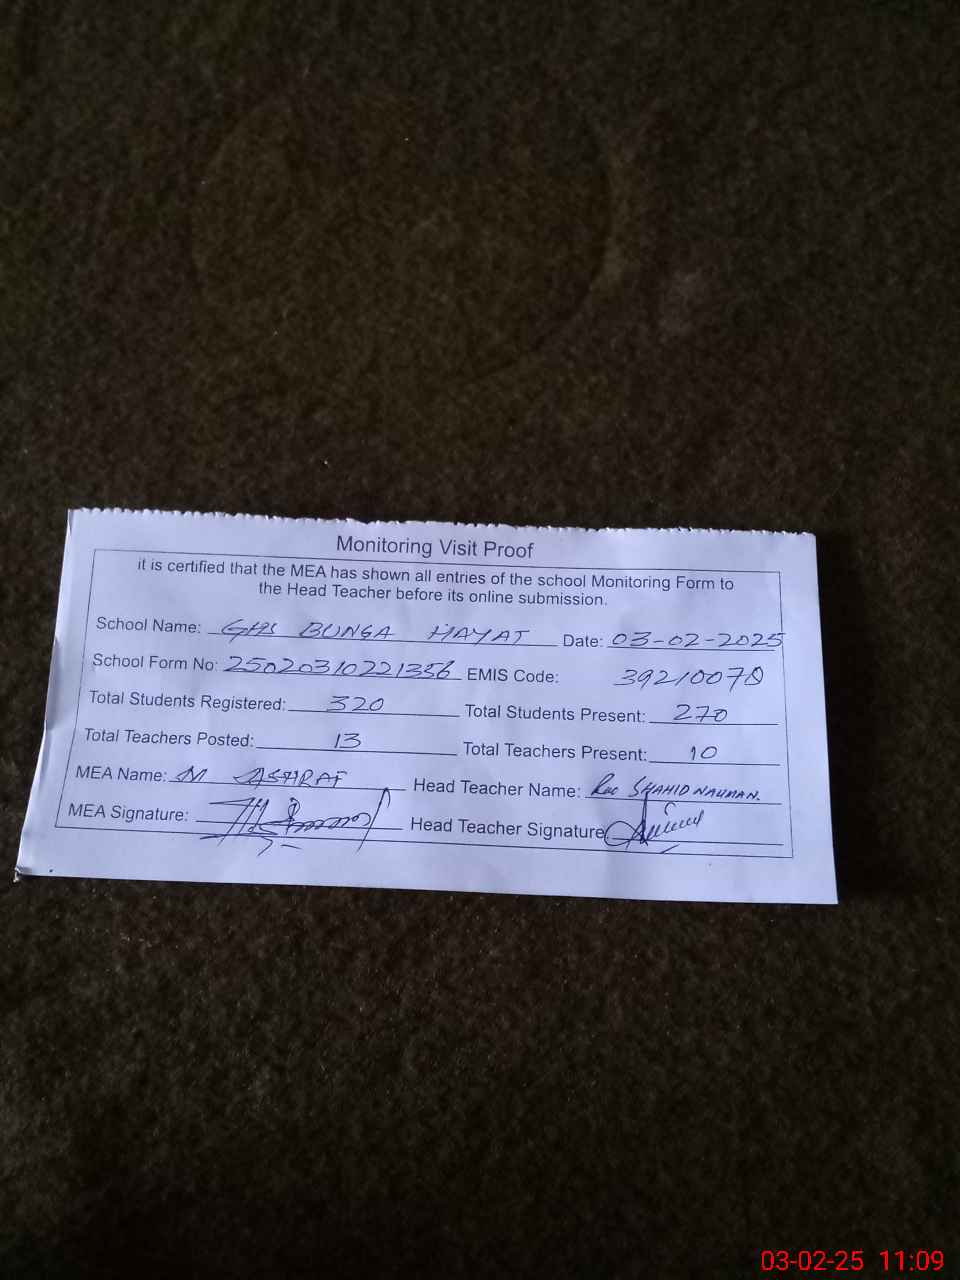 Monitoring Visit Proof
it is certified that the MEA has shown all entries of the school Monitoring Form to
the Head Teacher before its online submission.
School Name: GHS BUNGA HAYAT Date: 03-02-2025
School Form No: 25020310221356 EMIS Code: 39210070
Total Students Registered: 320 Total Students Present: 270
Total Teachers Posted: 13 Total Teachers Present: 10
MEA Name: M ASHRAF Head Teacher Name: Rao SHAHID NAUMAN.
MEA Signature: Head Teacher Signature
03-02-25 11:09